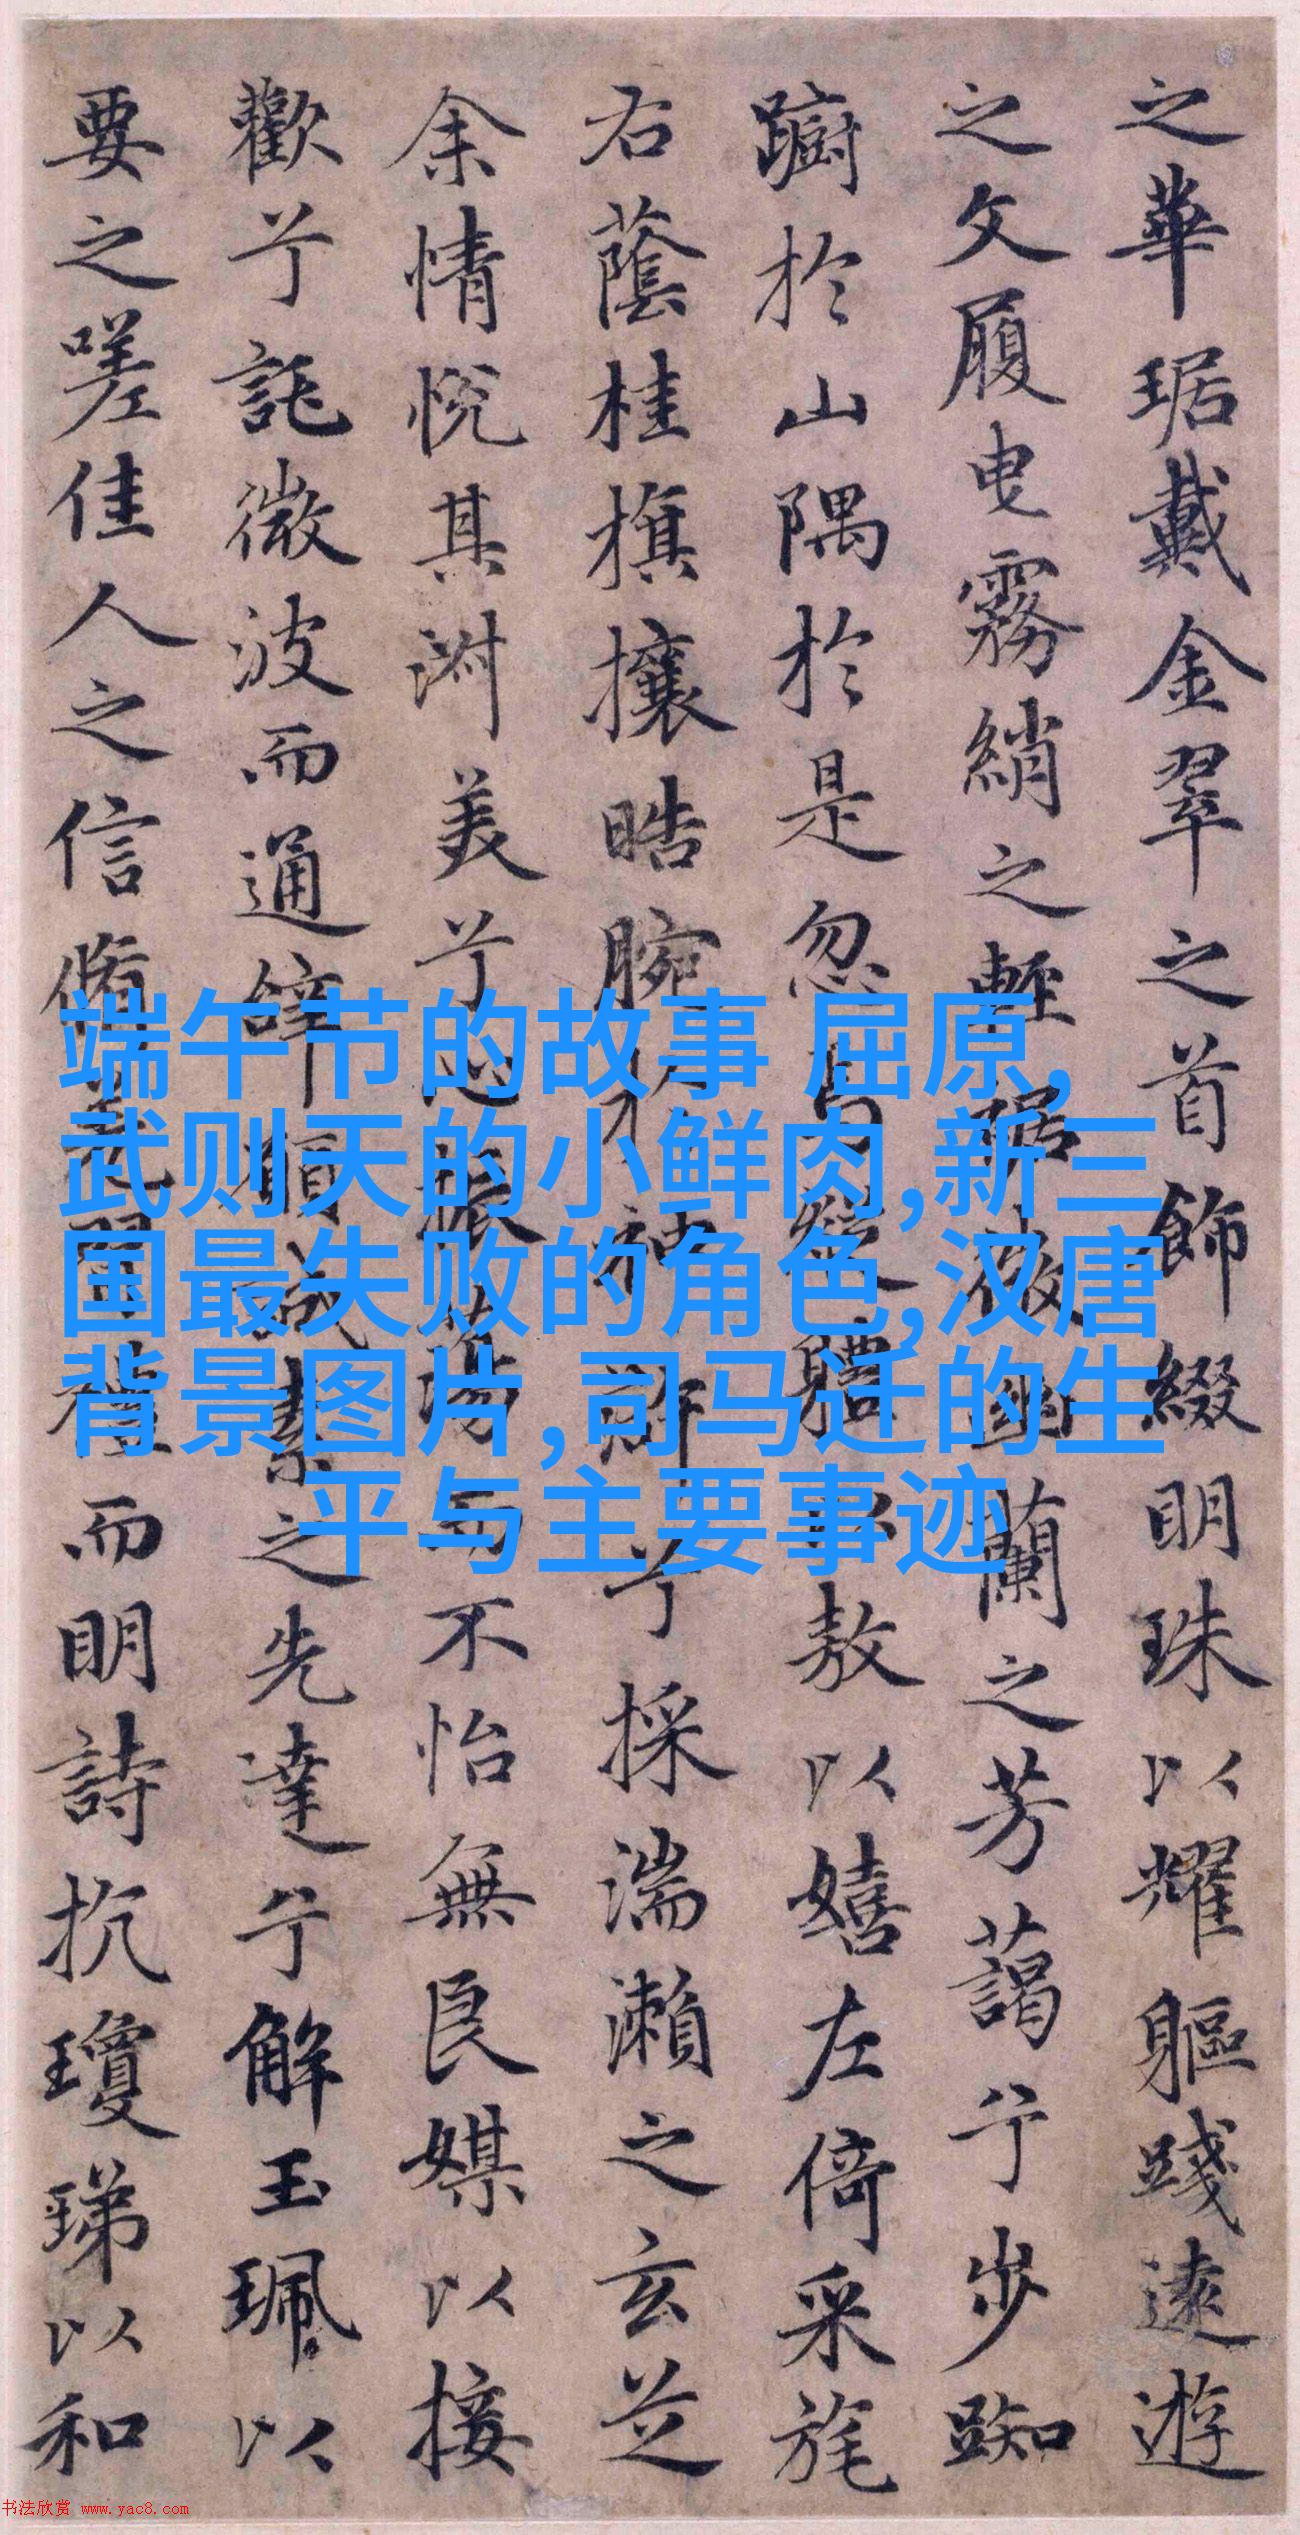 之華琚戴金翠之首飾綴明珠以耀軀踐遠遊
之文履曳霧綃之輕裾微幽蘭之芳藹兮步踟
躕於山隅於是忽焉縱體以敖以嬉左倚采旄
右蔭桂旗攘皓腕於神滸兮採湍瀨之玄芝
余情悅其淑美兮心振蕩而不怡無良媒以接
歡兮託微波而通辭願誠素之先達兮解玉珮以
要之嗟佳人之信脩羌習禮而明詩抗瓊珶以和
端午节的故事 屈原,
武则天的小鲜肉,新三
国最失败的角色,汉唐
背景图片,司马迁的生
平与主要事迹
书法欣赏 www.yac8.com